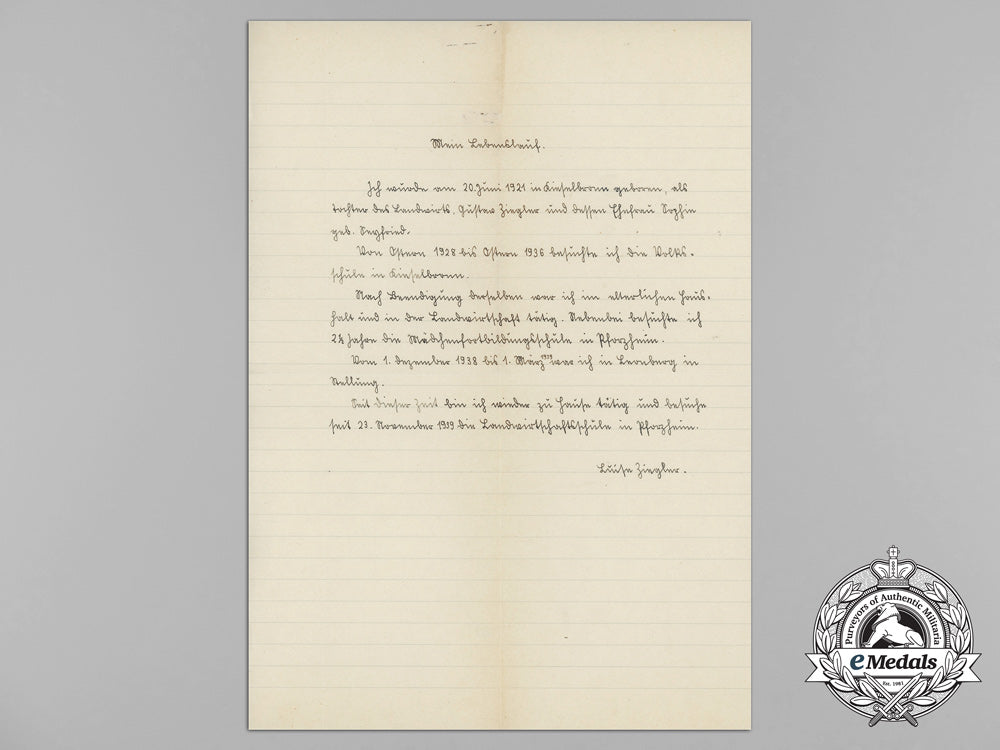 Mein Lebenslauf.
Ich wurde am 20. Juni 1921 in Kieselbronn geboren, als
Tochter des Landwirts, Gustav Ziegler und dessen Ehefrau Sophie
geb. Seyfried.
Von Ostern 1928 bis Ostern 1936 besuchte ich die Volks-
schule in Kieselbronn.
Nach Beendigung derselben war ich im elterlichen Haus-
halt und in der Landwirtschaft tätig. Nebenbei besuchte ich
2½ Jahre die Mädchenfortbildungsschule in Pforzheim.
Vom 1. Dezember 1938 bis 1. März 1939 war ich in in
Stellung.
Seit dieser Zeit bin ich wieder zu Hause tätig und besuche
seit 23. November 1939 die Landwirtschaftsschule in Pforzheim.
Luise Ziegler.
Purveyors of Authentic Militaria
eMedals
Est. 1981